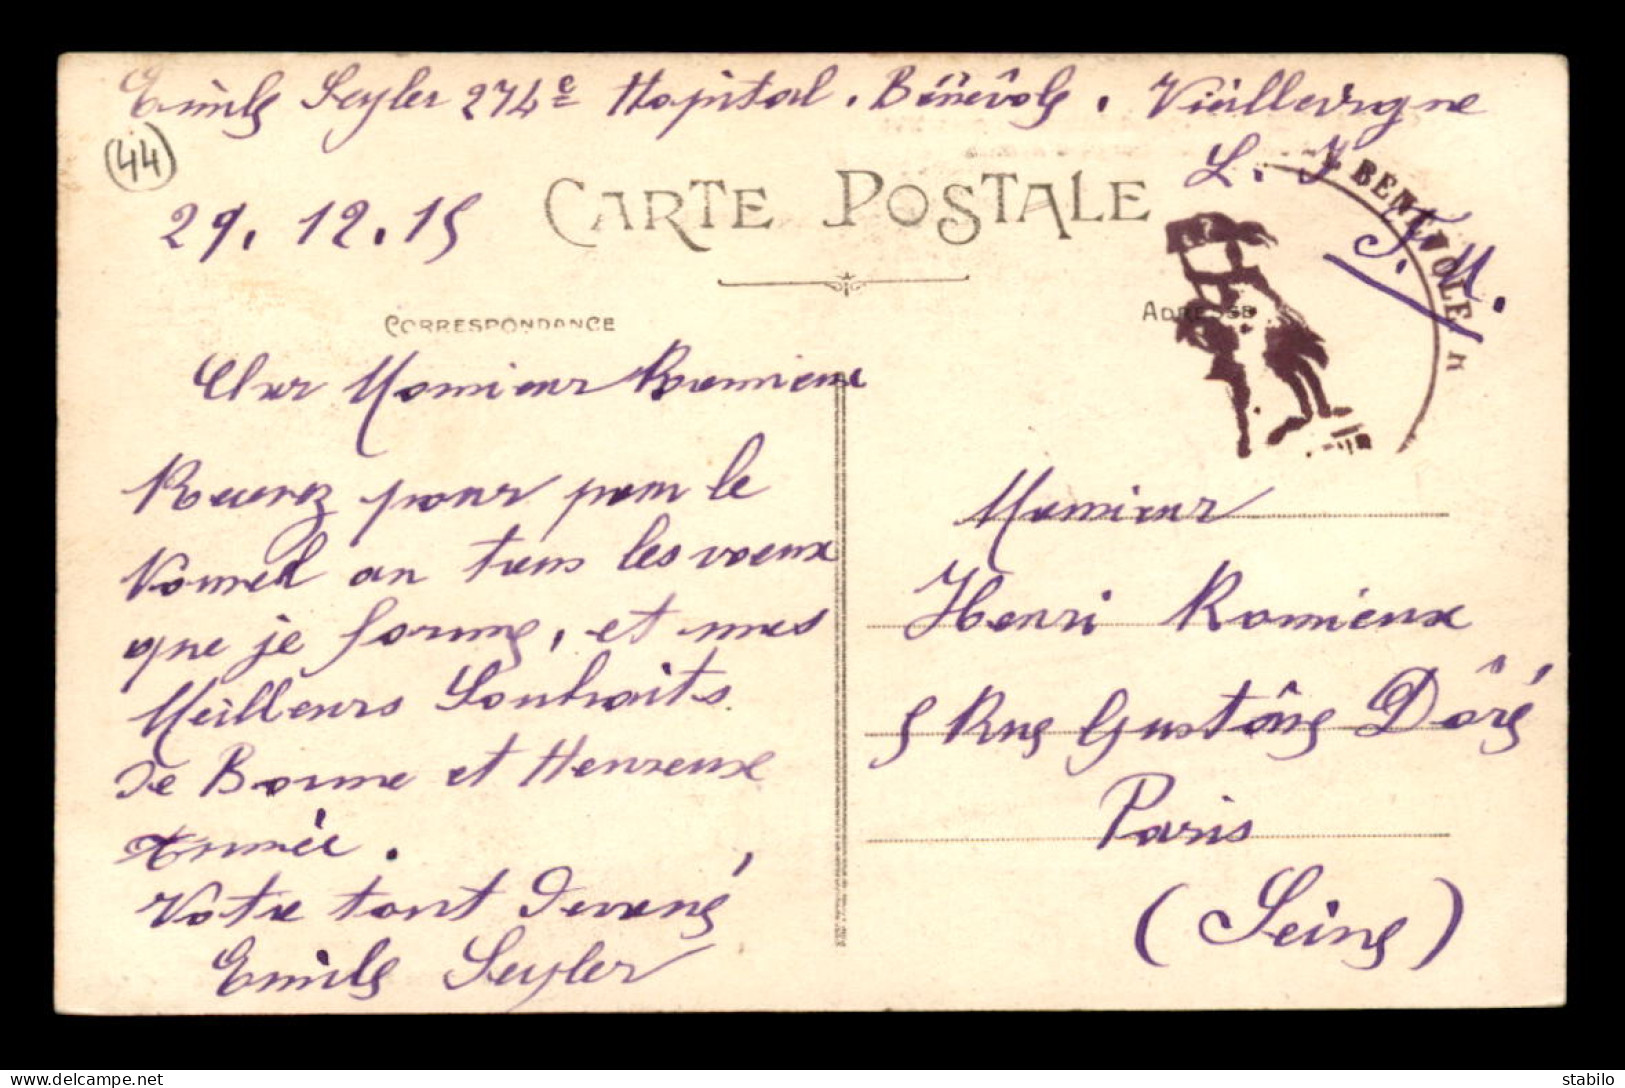 Emile Seyler 274e Hopital. Bénévole. Vieillevigne
L. I
(44)
29. 12. 15
CARTE POSTALE
BENEVOLE
F. M.
CORRESPONDANCE
ADRESSE
Cher Monsieur Romieux
Recevez pour pour le
Nouvel an tous les voeux
que je forme, et mes
Meilleurs Souhaits
De Bonne et Heureuse
Année.
Votre tout Devoué
Emile Seyler
Monsieur
Henri Romieux
5 Rue Gustave Doré
Paris
(Seine)
stabilo